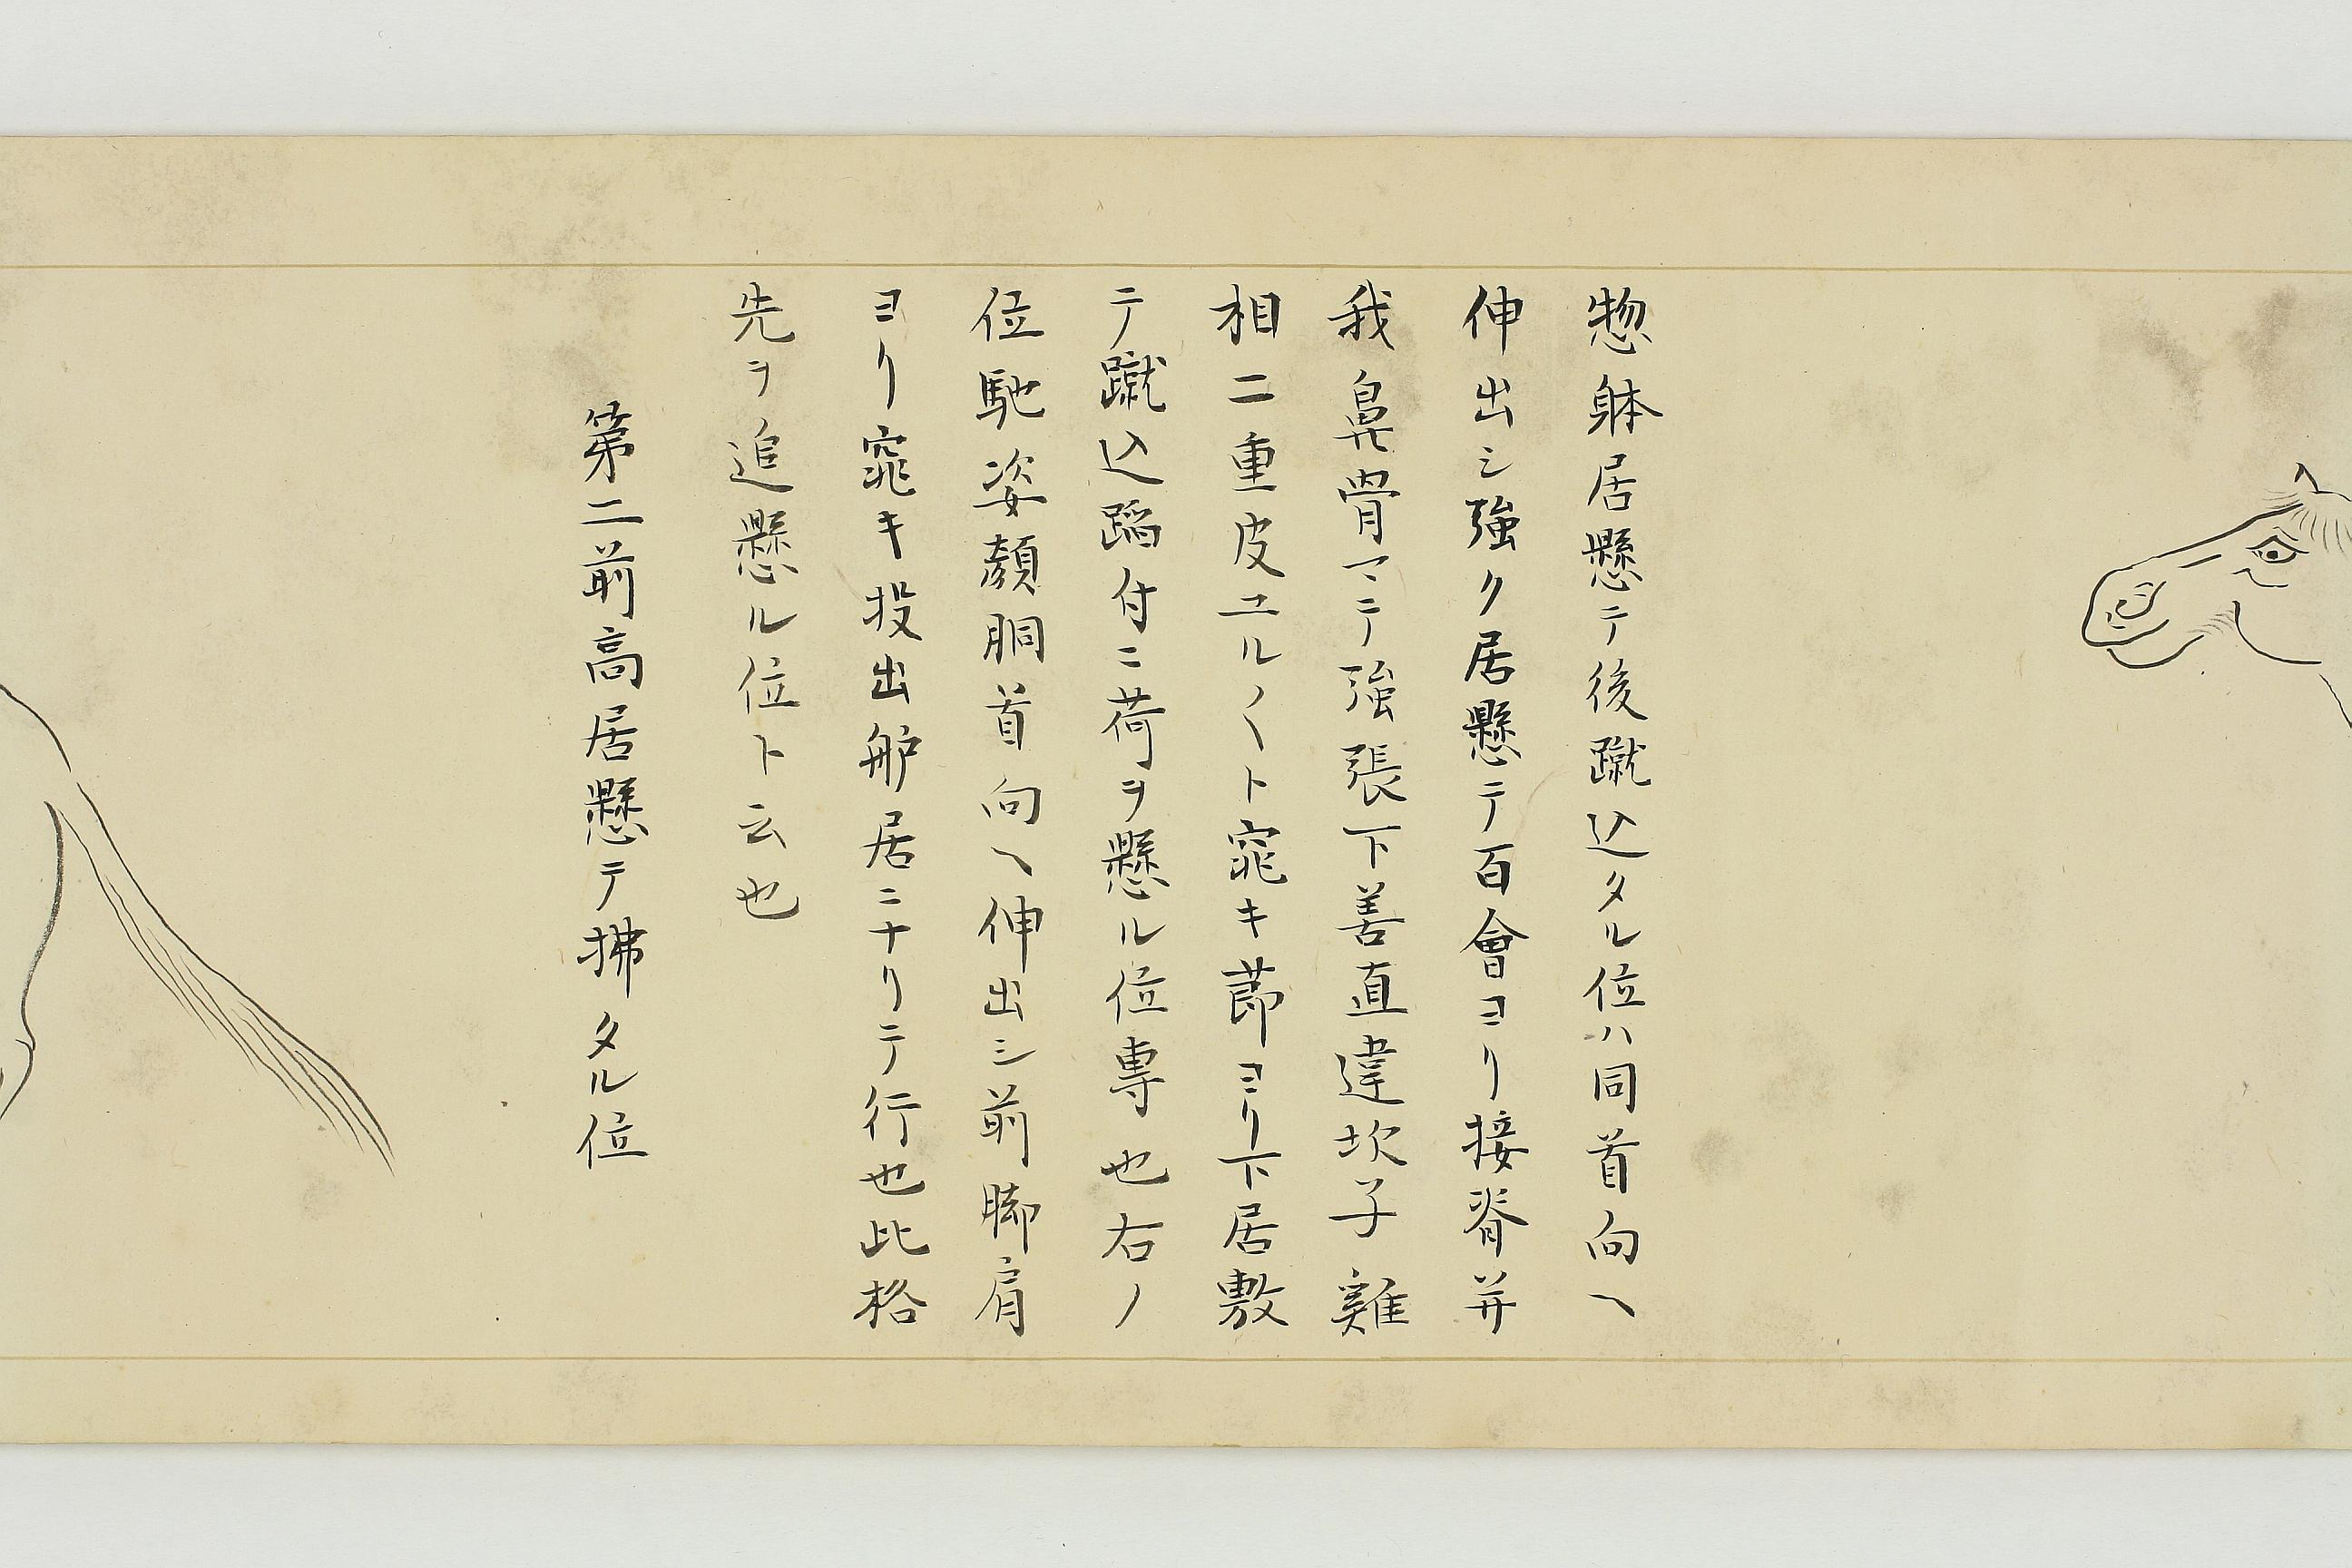 惣躰居懸テ後蹴込タル位ハ同首向ヘ
伸出シ強ク居懸テ百會ヨリ接脊并
我鼻骨マテ強張下善直違坎子難
相二重皮ユル〳〵ト窕キ莭ヨリ下居敷
テ蹴込蹈付ニ荷ヲ懸ル位専也右ノ
位馳姿顔胴首向ヘ伸出シ前脚肩
ヨリ窕キ投出舮居ニナリテ行也比格
先ヲ追懸ル位ト云也
第二前高居懸テ拂タル位